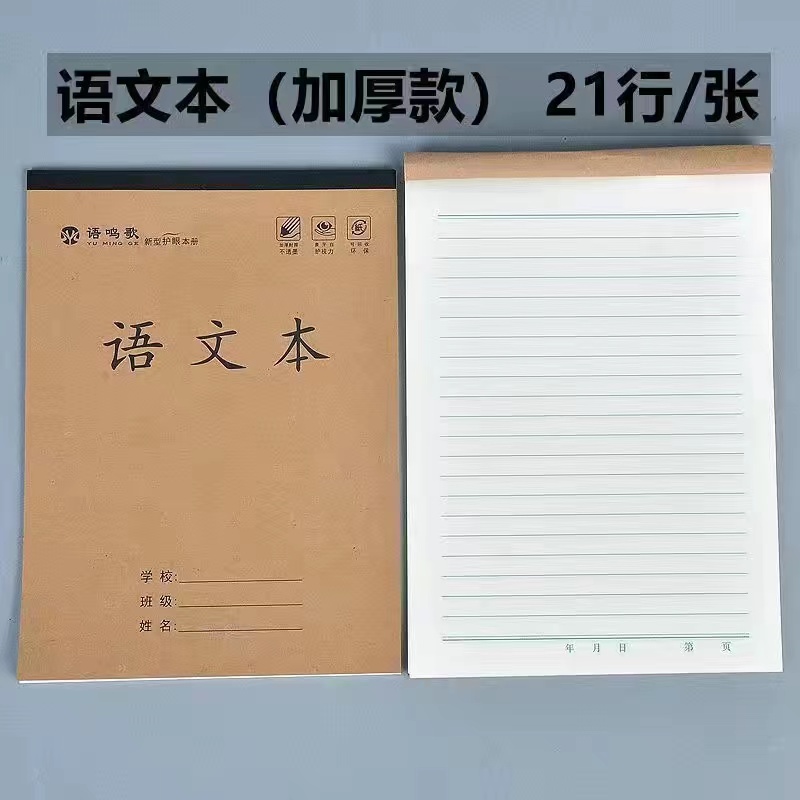 语文本（加厚款） 21行/张
语鸣歌
YU MING GE
新型护眼本册
加厚耐用
不透墨
米字白
护视力
可回收
环 保
纸
语文本
学校:
班级:
姓名:
年 月 日 第 页